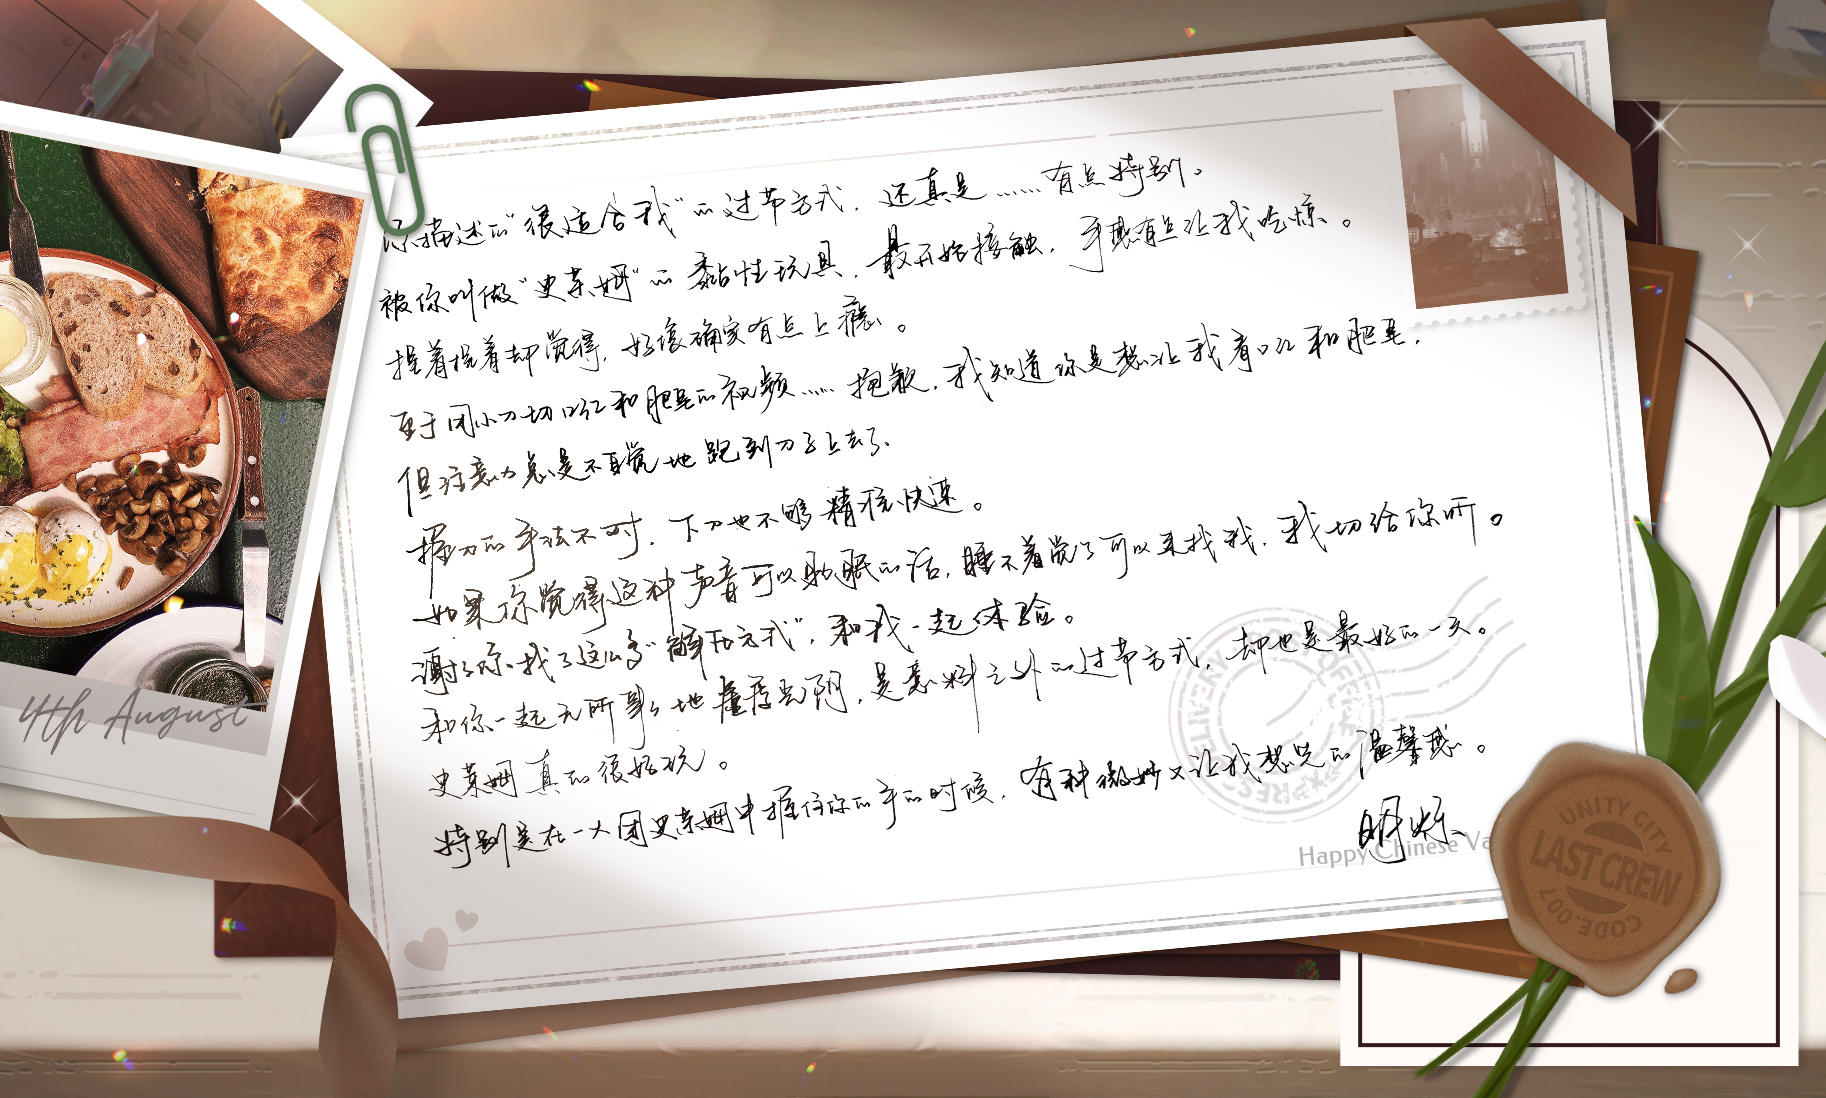 你描述的“很适合我”的过节方式，还真是……有点特别。
被你叫做“史莱姆”的黏性玩具，最开始接触，手感有点让我吃惊。
捏着捏着却觉得，好像确实有点上瘾。
至于用小刀切口红和肥皂的视频……抱歉，我知道你是想让我看口红和肥皂，
但注意力总是不自觉地跑到刀子上去了。
握刀的手法不对，下刀也不够精准快速。
如果你觉得这种声音可以助眠的话，睡不着觉了可以来找我，我切给你听。
谢谢你找了这么多“解压方式”，和我一起体验。
和你一起无所事事地虚度光阴，是意料之外的过节方式，却也是最好的一天。
史莱姆真的很好玩。
特别是在一大团史莱姆中握住你的手的时候，有种微妙又让我想笑的温馨感。
明烁
4th August
Happy Chinese Va
UNITY CITY
LAST CREW
CODE:007